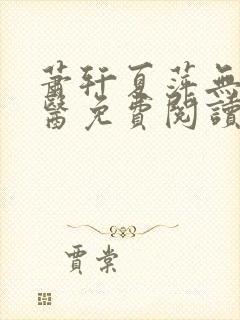 蕭軒夏萍無
醫免費閱讀
賈棠